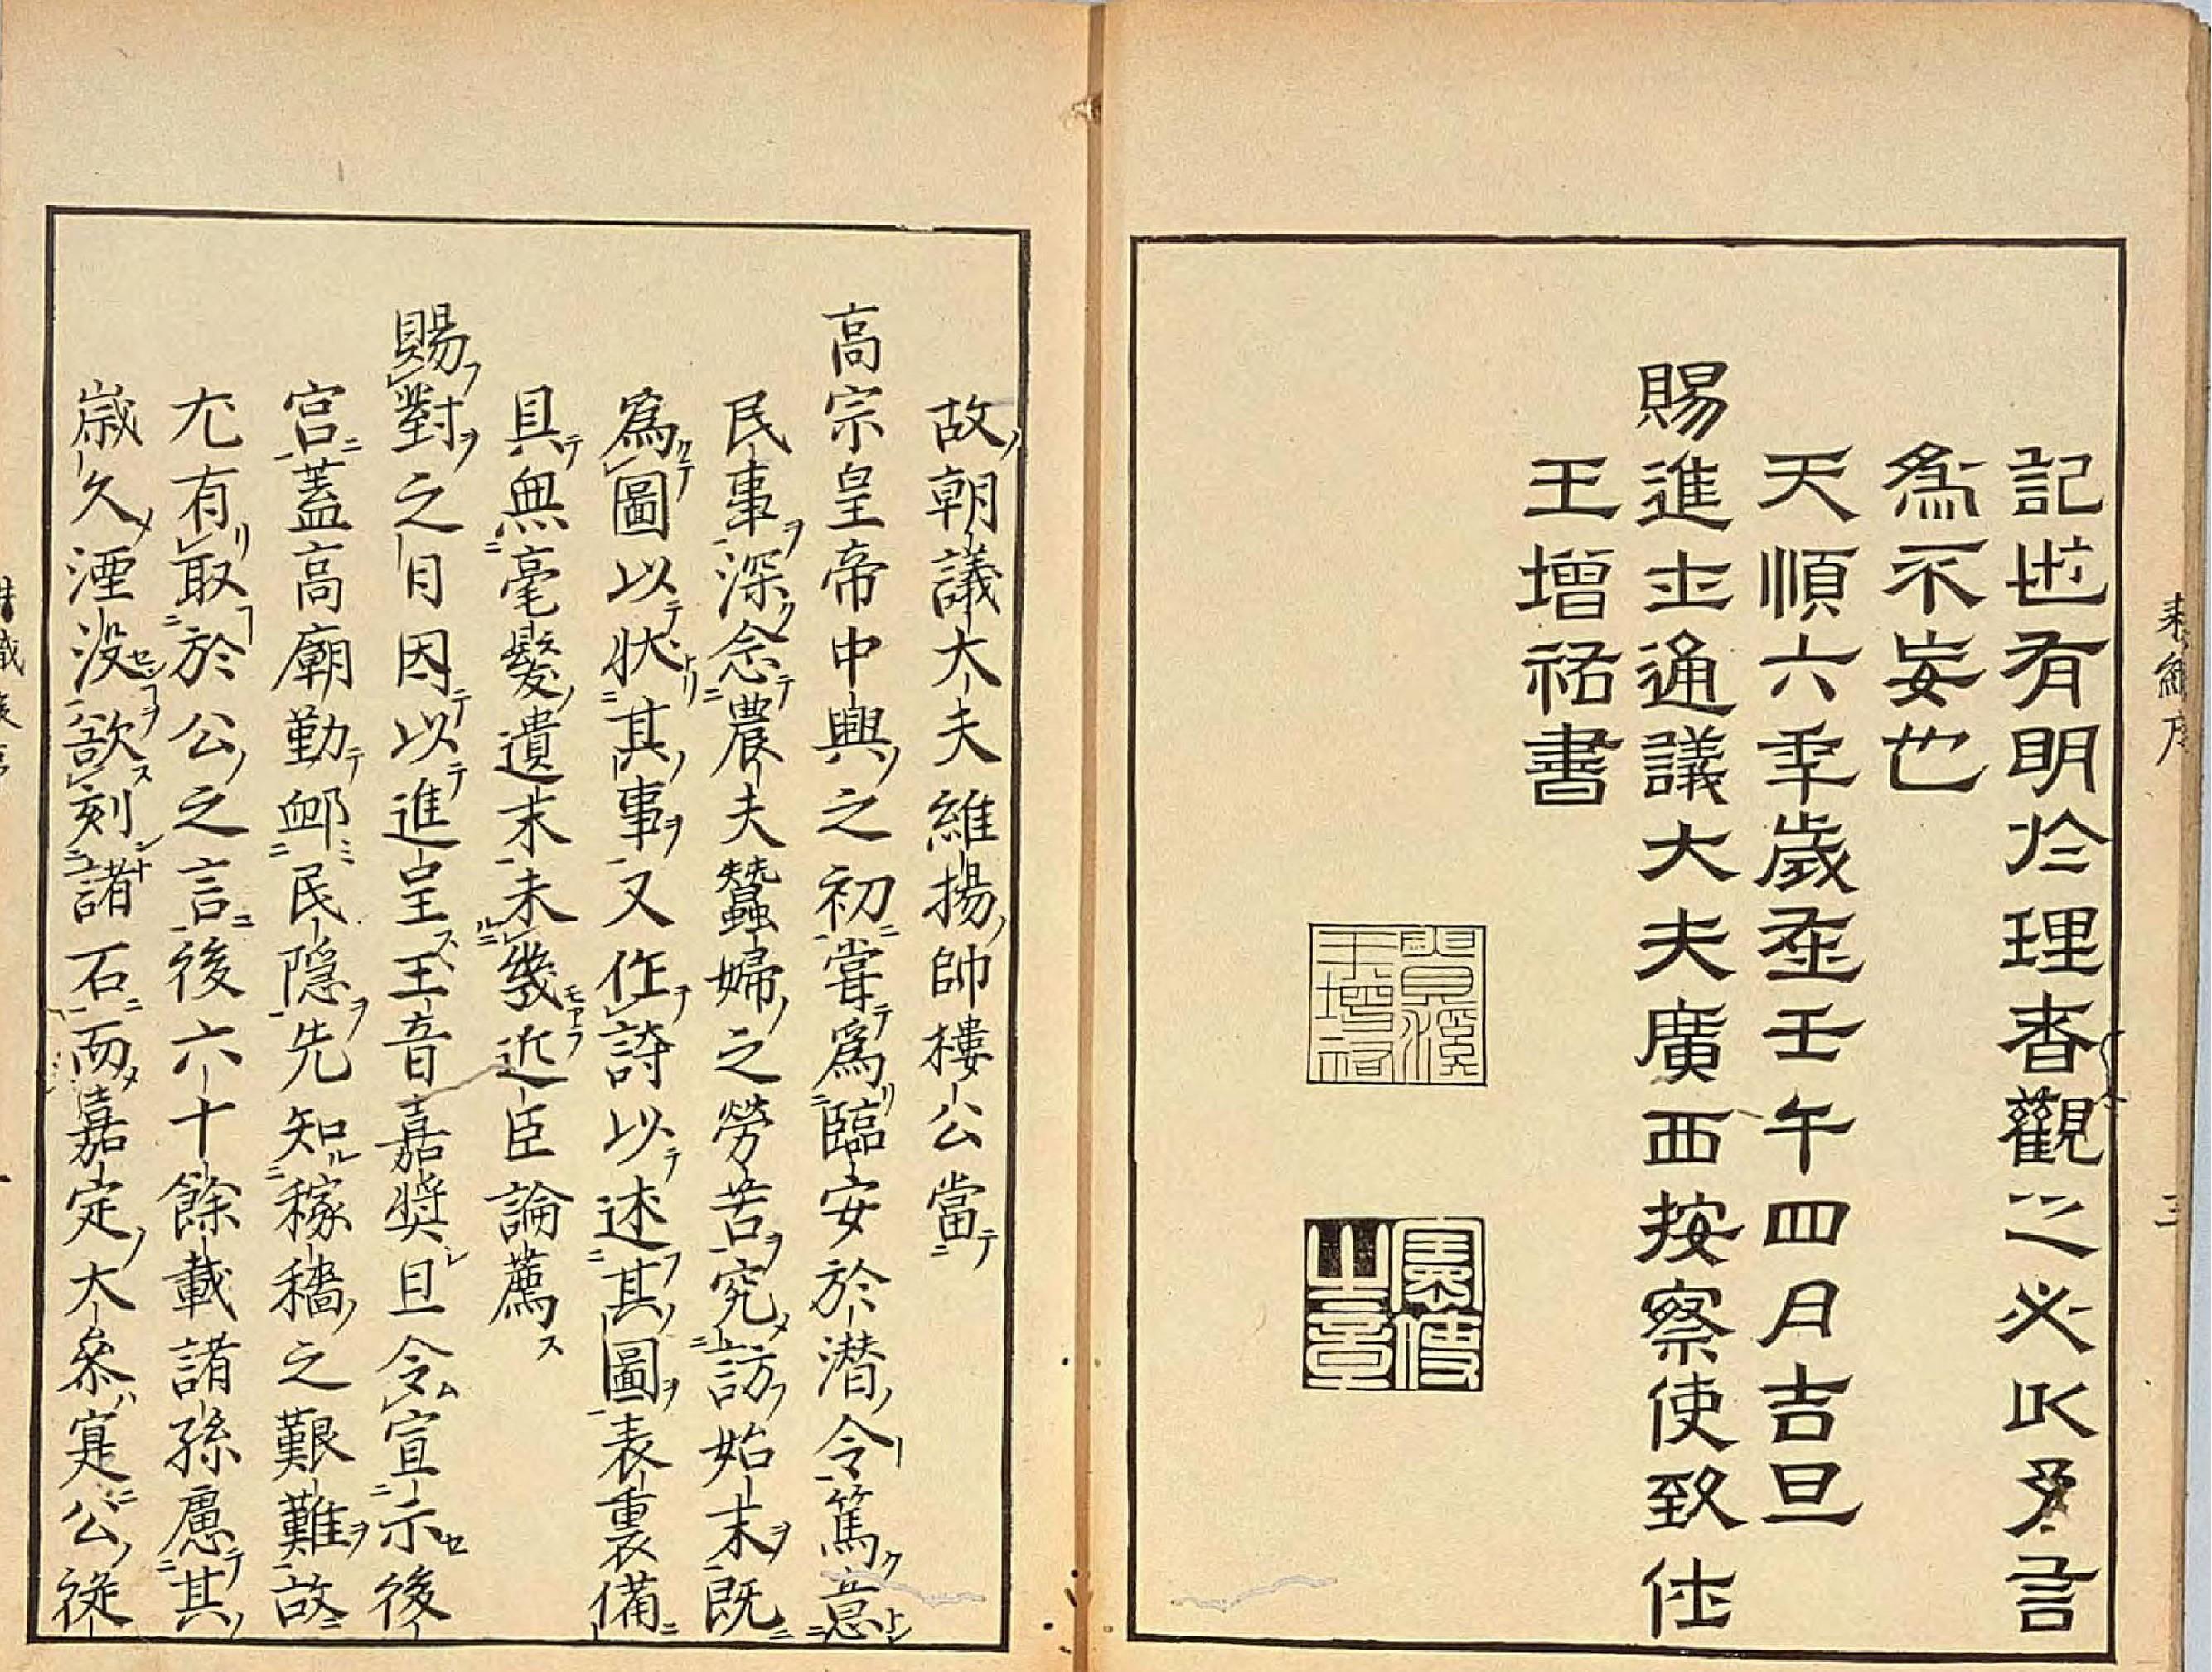 記也有明於理者觀之必以予言
爲不妄也
天順六年歲在壬午四月吉旦
賜進士通議大夫廣西按察使致仕
王增祐書
王增祐
故朝議大夫維揚帥樓公當
高宗皇帝中興之初嘗爲臨安於潛令篤意
民事深念農夫蠶婦之勞苦究訪始末既
爲圖以狀其事又作詩以述其圖表裏備
具無毫髮遺末未幾近臣論薦
賜對之日因以進呈玉音嘉奬且令宣示後
宮蓋高廟勤卹民隱先知稼穡之艱難故
尤有取於公之言後六十餘載諸孫慮其
歲久湮沒欲刻諸石而嘉定大參寔公從